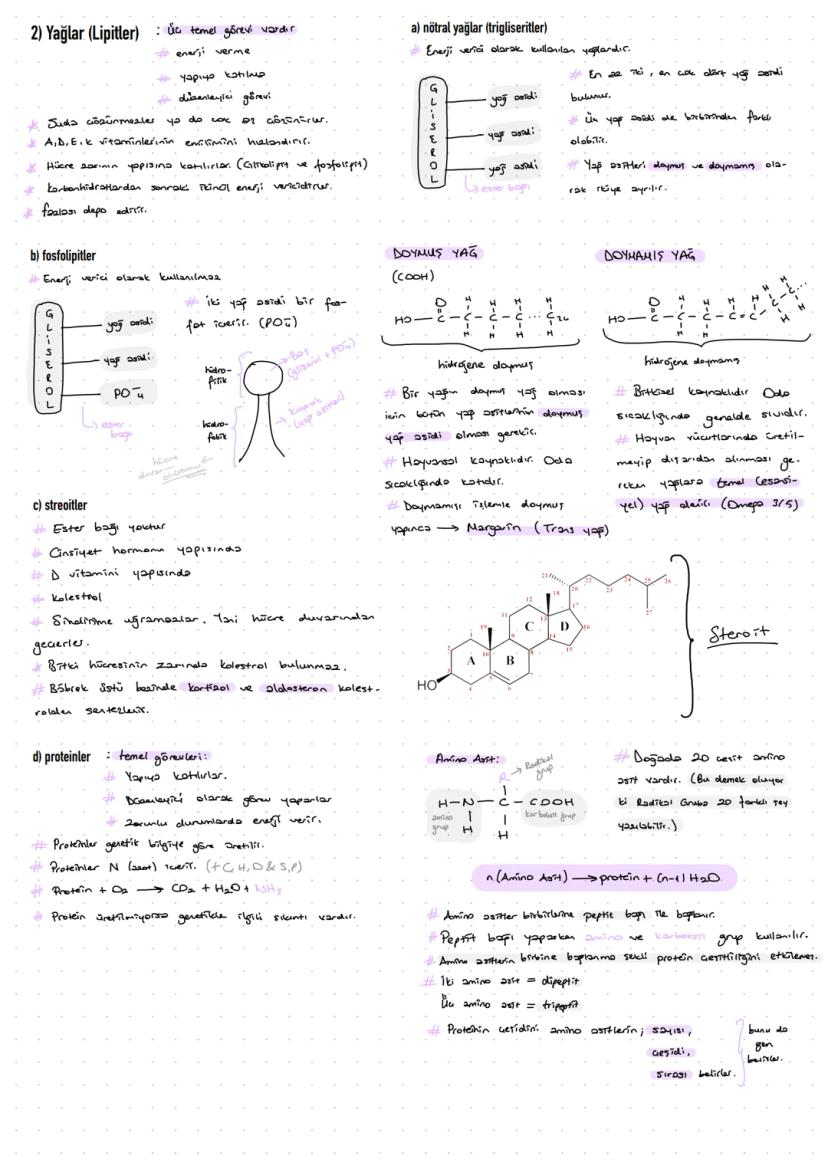 2) Yağlar (Lipitler) : Üç temel görevi vardır
# enerji verme
# yapıya katılma
# düzenleyici görevi
* Suda çözünmezler ya da çok az çözünürler.
* A, D, E, K vitaminlerinin emilimini hızlandırır.
* Hücre zarının yapısına katılırlar. (Glikolipit ve fosfolipit)
* Karbonhidratlardan sonraki ikincil enerji vericidirler.
* fazlası depo edilir.
a) nötral yağlar (trigliseritler)
# Enerji verici olarak kullanılan yağlardır.
GLİSEROL
yağ asidi
yağ asidi
yağ asidi
ester bağı
# En az iki, en çok dört yağ asidi
bulunur.
# Üç yağ asidi de birbirinden farklı
olabilir.
# Yağ asitleri doymuş ve doymamış ola-
rak ikiye ayrılır.
b) fosfolipitler
# Enerji verici olarak kullanılmaz
GLİSEROL
yağ asidi
yağ asidi
PO₄⁻
ester
bağı
# iki yağ asidi bir fos-
fat içerir. (PO₄⁻)
hidro-
filik
Baş
(gliserol + PO₄⁻)
hidro-
fobik
kuyruk
(yağ asitleri)
hücre
duvarını
oluşturur
DOYMUŞ YAĞ
(COOH)
O H H H H
HO — C — C — C — C ... C₂₆
H H H H
hidrojene doymuş
# Bir yağın doymuş yağ olması
için bütün yağ asitlerinin doymuş
yağ asidi olması gerekir.
# Hayvansal kaynaklıdır. Oda
sıcaklığında katıdır.
# Doymamış işlemle doymuş
yapınca → Margarin (Trans yağ)
DOYMAMIŞ YAĞ
O H H H H H H
HO — C — C — C — C = C C C ...
H H H H
hidrojene doymamış
# Bitkisel kaynaklıdır Oda
sıcaklığında genelde sıvıdır.
# Hayvan vücutlarında üretil-
meyip dışarıdan alınması ge-
reken yağlara temel (esansi-
yel) yağ denir. (Omega 3/5)
c) streoitler
# Ester bağı yoktur
# Cinsiyet hormonu yapısında
# D vitamini yapısında
# kolestrol
# Sindirime uğramazlar. Yani hücre duvarından
geçerler.
* Bitki hücresinin zarında kolestrol bulunmaz.
# Böbrek üstü bezinde kortizol ve aldosteron kolest-
rolden sentezlenir.
HO
A B C D
1 2 3 4 5 6 7 8 9 10 11 12 13 14 15 16 17 18 19 20 21 22 23 24 25 26 27
Steroit
d) proteinler : temel görevleri:
# Yapıya katılırlar.
# Düzenleyici olarak görev yaparlar
# zorunlu durumlarda enerji verir.
# Proteinler genetik bilgiye göre üretilir.
# Proteinler N (azot) içerir. (+C, H, O & S, P)
# Protein + O₂ → CO₂ + H₂O + NH₃
# Protein üretilmiyorsa genetikle ilgili sıkıntı vardır.
Amino Asit:
R → Radikal
grup
H — N — C — COOH
H H
amino
grup
karboksil grup
# Doğada 20 çeşit amino
asit vardır. (Bu demek oluyor
ki Radikal Gruba 20 farklı şey
yazılabilir.)
n (Amino Asit) → protein + (n-1) H₂O
# Amino asitler birbirlerine peptit bağı ile bağlanır.
# Peptit bağı yaparken amino ve karboksil grup kullanılır.
# Amino asitlerin birbirine bağlanma şekli protein çeşitliliğini etkilemez.
# İki amino asit = dipeptit
Üç amino asit = tripeptit
# Proteinin çeşidini amino asitlerin; sayısı,
çeşidi,
sırası belirler.
bunu da
gen
belirler.